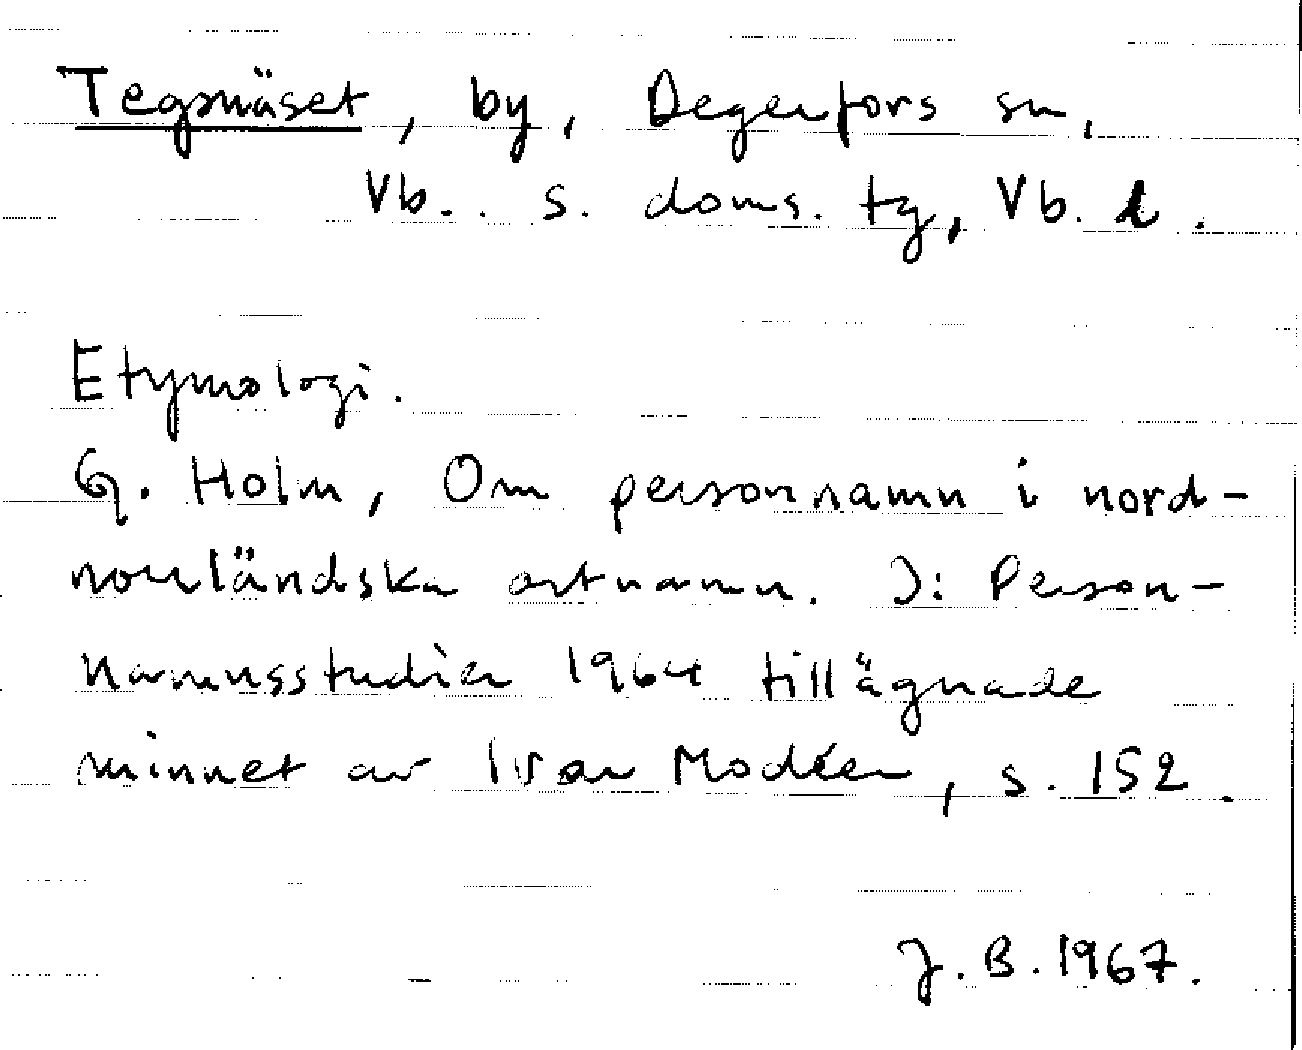 Tegsnäset, by, Degerfors sn,
Vb. s. doms. tg, Vb. l.
Etymologi.
G. Holm, Om personnamn i nord-
norrländska ortnamn. I: Person-
namnsstudier 1964 tillägnade
minnet av Ivar Modéer, s. 152.
J. B. 1967.